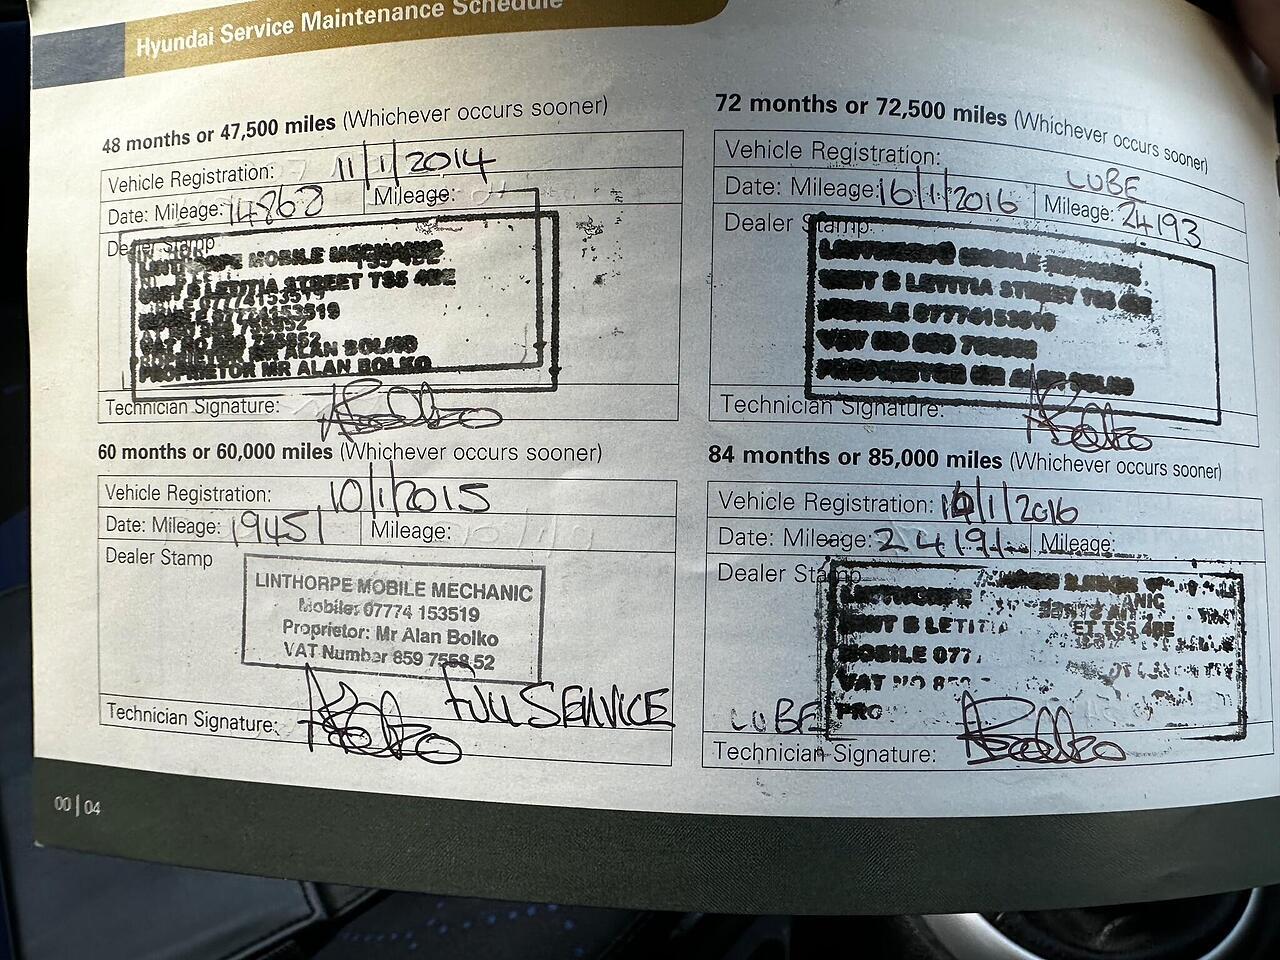 Hyundai Service Maintenance Schedule
48 months or 47,500 miles (Whichever occurs sooner)
Vehicle Registration: 11/1/2014
Date: Mileage: 14868 Mileage:
Dealer Stamp
LINTHORPE MOBILE MECHANIC
UNIT B LETITIA STREET TS5 4BE
MOBILE 07774153519
PROPRIETOR MR ALAN BOLKO
PROPRIETOR MR ALAN BOLKO
Technician Signature: A Bolko
60 months or 60,000 miles (Whichever occurs sooner)
Vehicle Registration: 10/1/2015
Date: Mileage: 19451 Mileage:
Dealer Stamp
LINTHORPE MOBILE MECHANIC
Mobile: 07774 153519
Proprietor: Mr Alan Bolko
VAT Number 859 7558 52
FULL SERVICE
Technician Signature: A Bolko
00 | 04
72 months or 72,500 miles (Whichever occurs sooner)
Vehicle Registration: LUBE
Date: Mileage: 16/1/2016 Mileage: 24193
Dealer Stamp
LINTHORPE MOBILE MECHANIC
UNIT B LETITIA STREET TS5 4BE
MOBILE 07774153519
VAT NO
PROPRIETOR MR ALAN BOLKO
Technician Signature: A Bolko
84 months or 85,000 miles (Whichever occurs sooner)
Vehicle Registration: 10/1/2016
Date: Mileage: 24191 Mileage:
Dealer Stamp
LINTHORPE ANIC
UNIT B LETITIA ET TS5 4BE
MOBILE 077
VAT NO
PRO
LUBE
Technician Signature: A Bolko